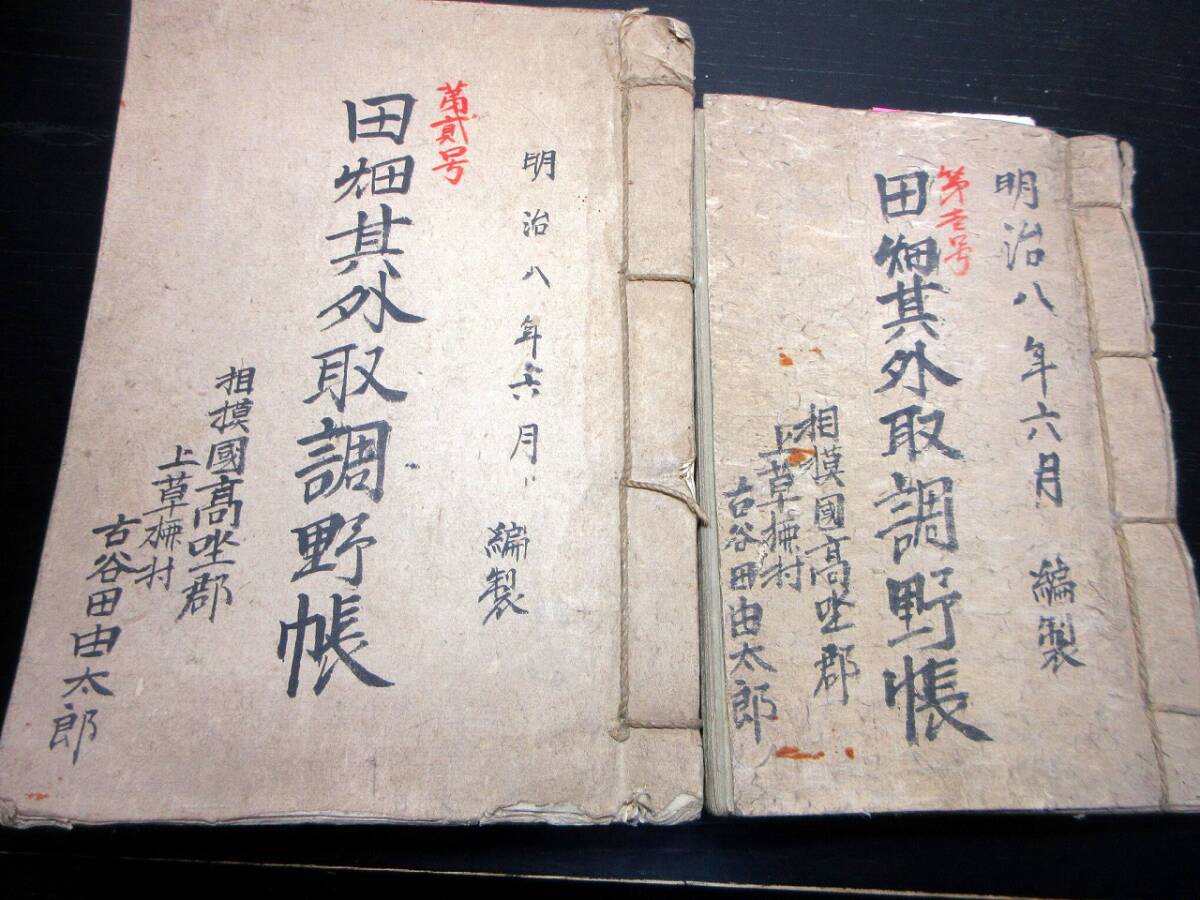 明治八年六月 編製
第壱号
田畑其外取調野帳
相模國高坐郡
上草柳村
古谷田由太郎
明治八年六月 編製
第貳号
田畑其外取調野帳
相模國高坐郡
上草柳村
古谷田由太郎